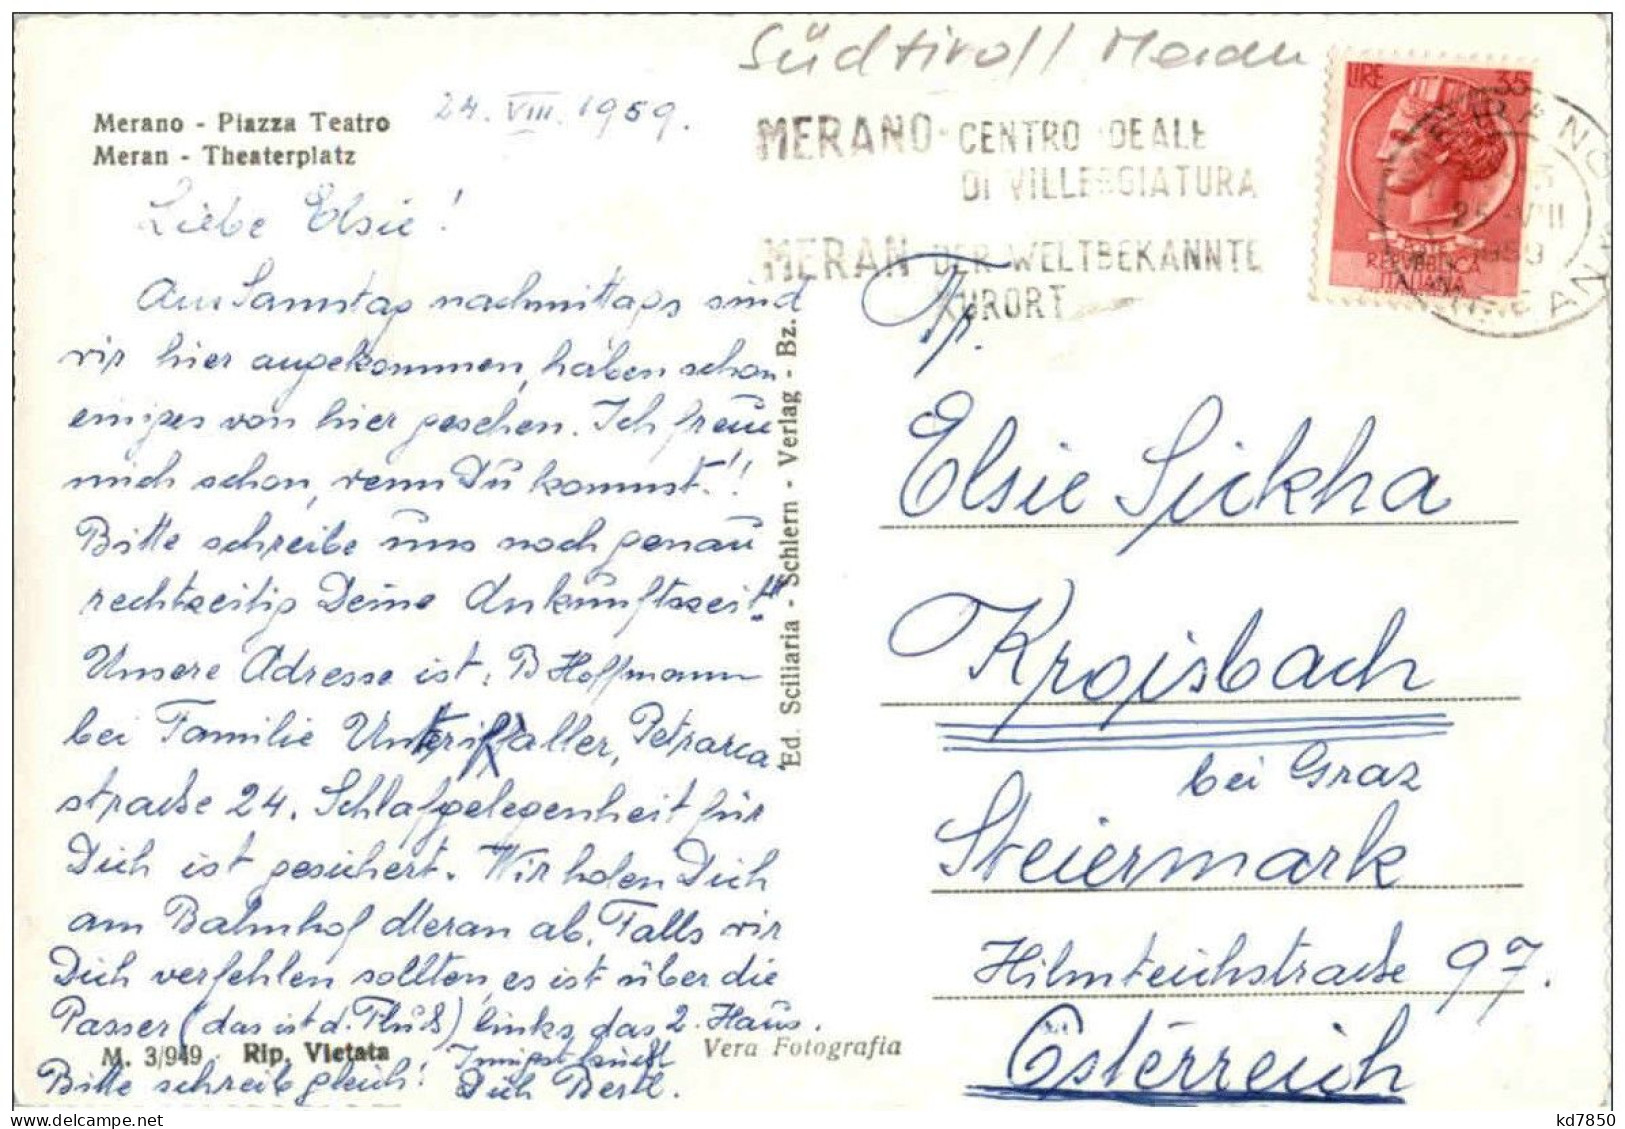 Südtirol / Meran
Merano - Piazza Teatro
Meran - Theaterplatz
24. VIII. 1959.
MERANO - CENTRO IDEALE
DI VILLEGGIATURA
MERAN DER WELTBEKANNTE
KURORT
LIRE 35
POSTE
REPVBBLICA
ITALIANA
Liebe Elsie!
Am Samstag nachmittags sind
wir hier angekommen, haben schon
einiges von hier gesehen. Ich freue
mich schon, wenn Du kommst!!
Bitte schreibe uns noch genau
rechtzeitig Deine Ankunftszeit!
Unsere Adresse ist: B Hoffmann
bei Familie Petrarca-
straße 24. Schlafgelegenheit für
Dich ist gesichert. Wir holen Dich
am Bahnhof Meran ab. Falls wir
Dich verfehlen sollten, es ist über die
Passer (das ist d. Fluß) links, das 2. Haus.
Bitte schreib gleich! Innigst küßt
Dich Bertl.
M. 3/949 Rip. Vietata
Vera Fotografia
Ed. Sciliaria - Schlern - Verlag - Bz.
Elsie Sickha
Kroisbach
bei Graz
Steiermark
Hilmteichstraße 97.
Österreich
kd7850